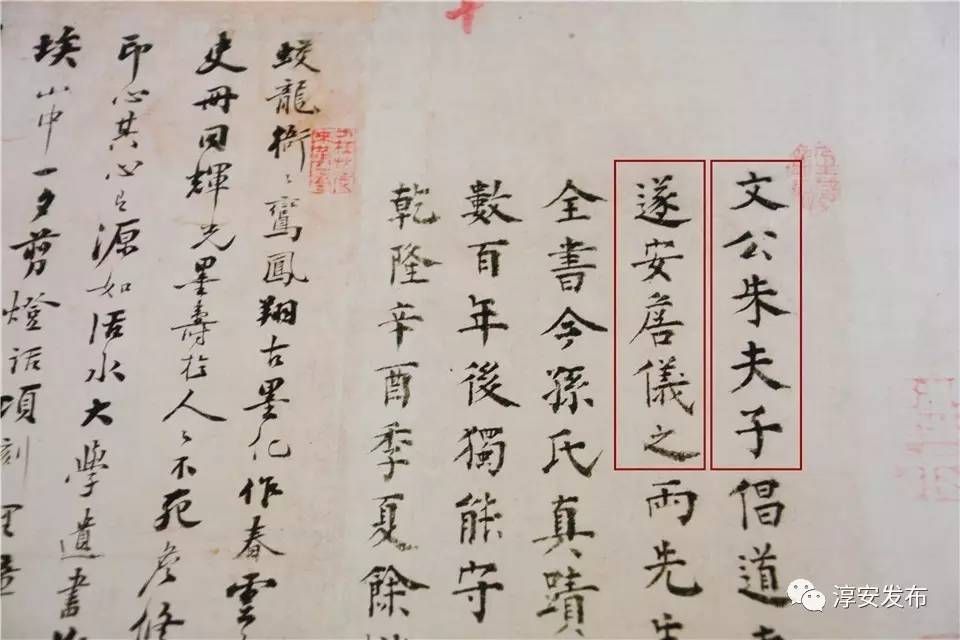 文公朱夫子倡道
遂安詹儀之兩先生
全書今孫氏真蹟
數百年後獨能守
乾隆辛酉季夏餘
蛟龍鸞鳳翔古墨化作春雲
史冊同輝光墨壽於人〻不死詹脩
印心其心源如活水大學遺書
埃山中一夕剪燈話項刻
淳安发布